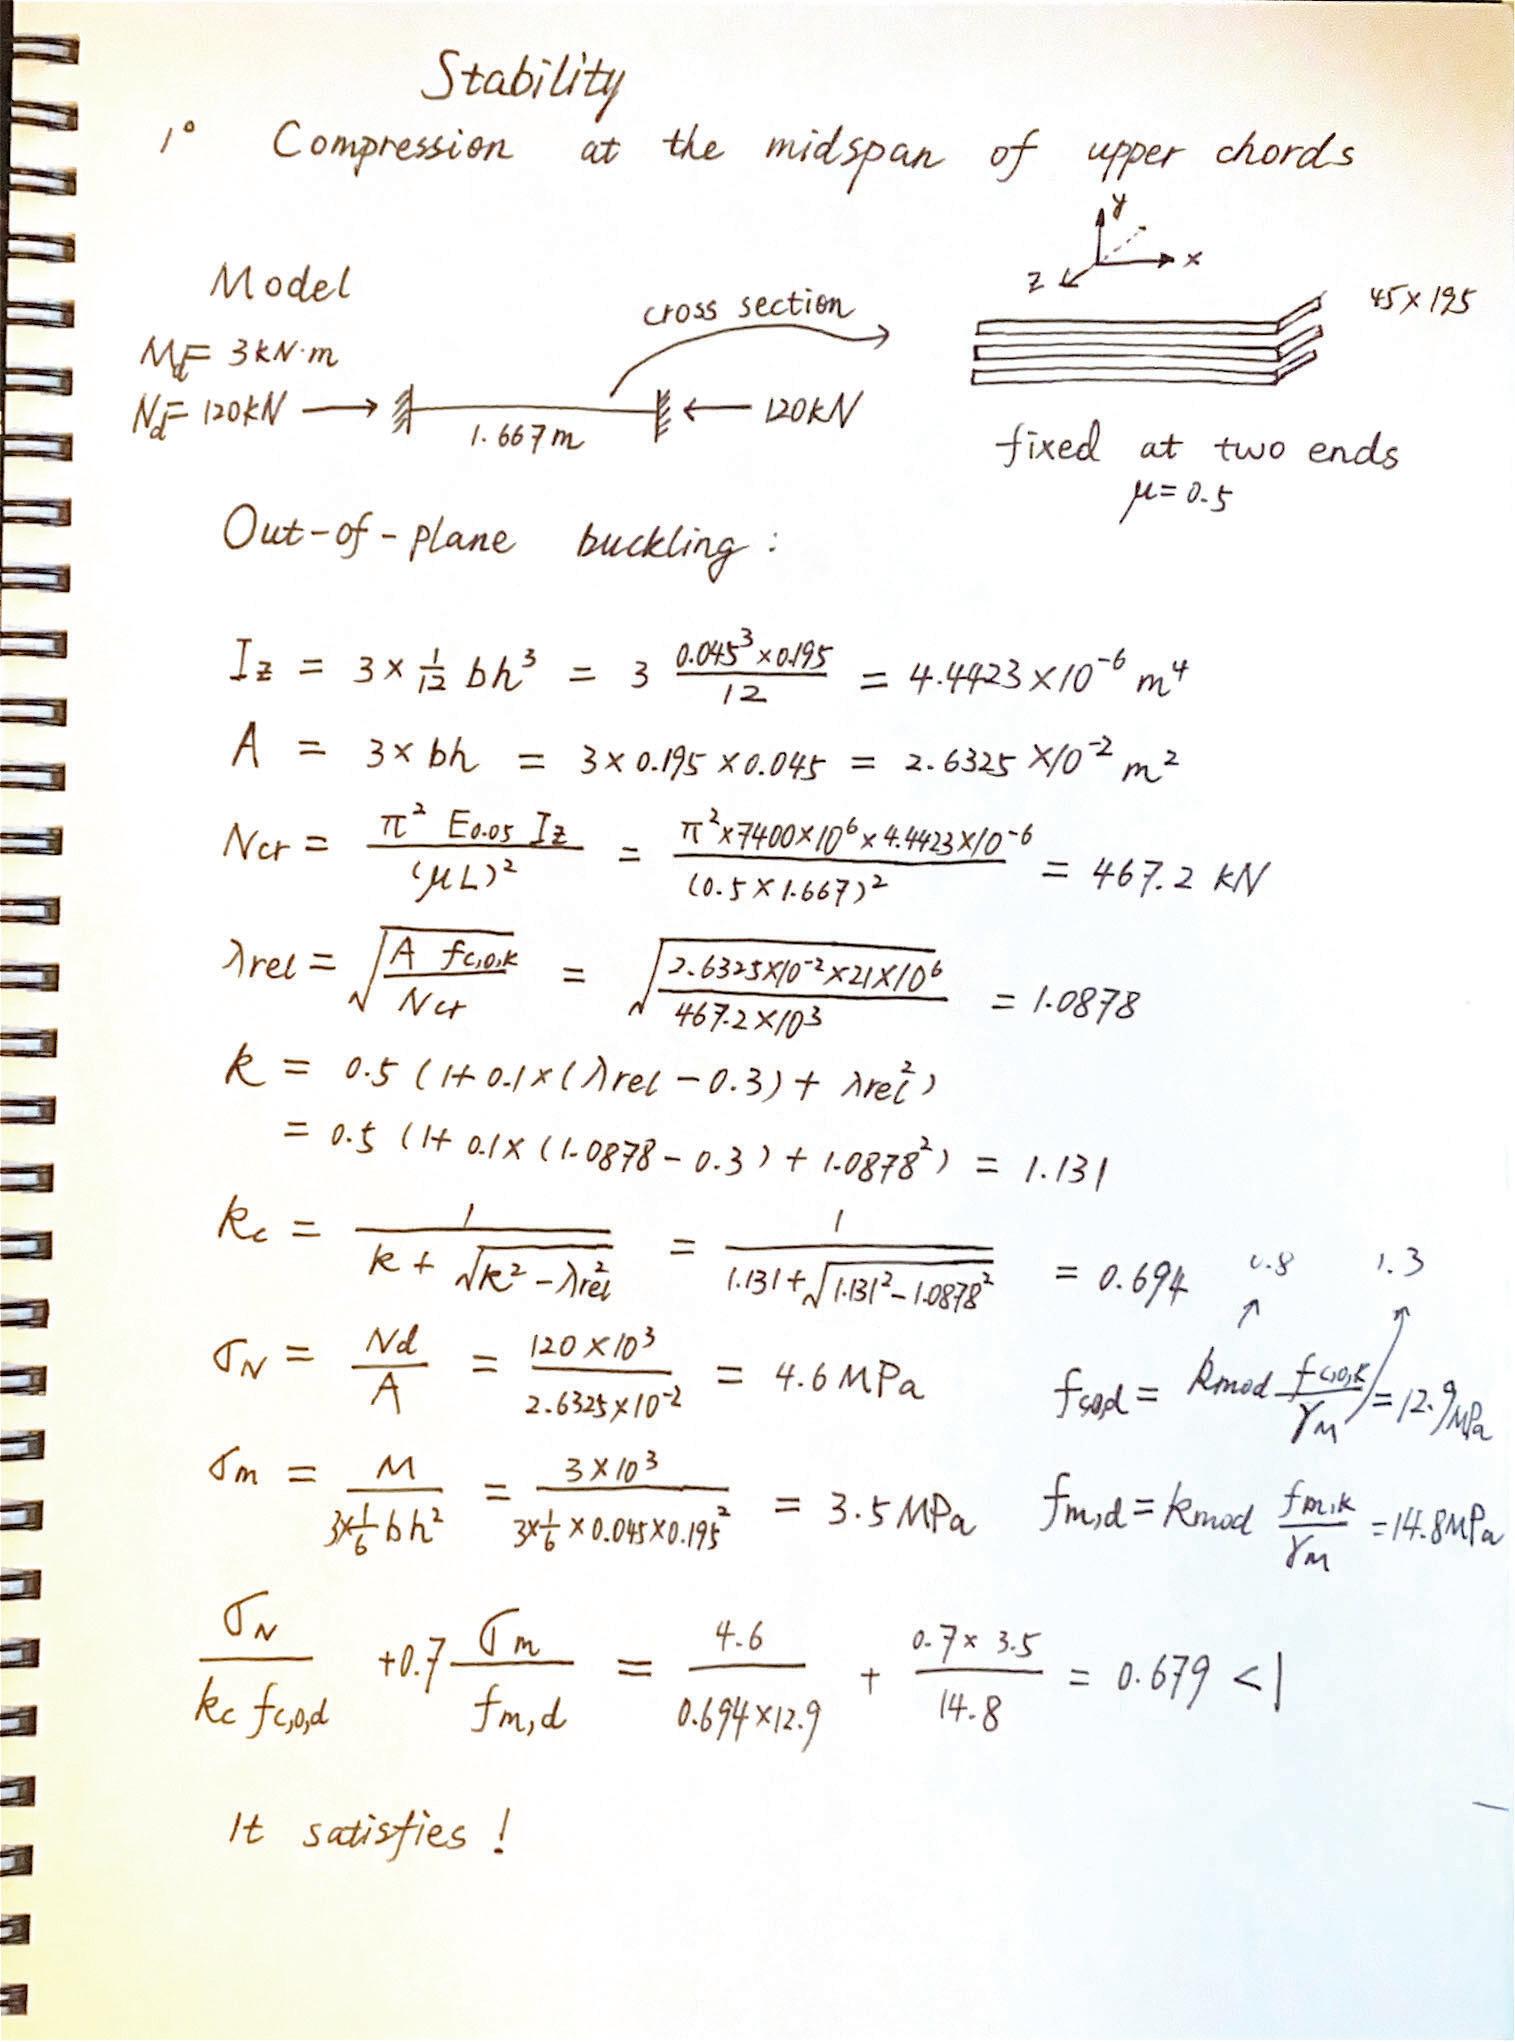 Stability
1° Compression at the midspan of upper chords
y
x
z
Model
cross section
45×195
M_d = 3 kN·m
N_d = 120 kN
1.667 m
120 kN
fixed at two ends
μ = 0.5
Out-of-plane buckling:
I_z = 3 × 1/12 bh³ = 3 (0.045³ × 0.195)/12 = 4.4423 × 10⁻⁶ m⁴
A = 3 × bh = 3 × 0.195 × 0.045 = 2.6325 × 10⁻² m²
N_cr = (π² E_0.05 I_z)/(μL)² = (π² × 7400 × 10⁶ × 4.4423 × 10⁻⁶)/(0.5 × 1.667)² = 467.2 kN
λ_rel = √(A f_c,0,k / N_cr) = √(2.6325 × 10⁻² × 21 × 10⁶ / 467.2 × 10³) = 1.0878
k = 0.5 (1 + 0.1 × (λ_rel − 0.3) + λ_rel²)
= 0.5 (1 + 0.1 × (1.0878 − 0.3) + 1.0878²) = 1.131
k_c = 1/(k + √(k² − λ_rel²)) = 1/(1.131 + √(1.131² − 1.0878²)) = 0.694
0.8
1.3
σ_N = N_d/A = (120 × 10³)/(2.6325 × 10⁻²) = 4.6 MPa
f_c,0,d = k_mod f_c,0,k/γ_M = 12.9 MPa
σ_m = M/(3×1/6 bh²) = (3 × 10³)/(3×1/6 × 0.045 × 0.195²) = 3.5 MPa
f_m,d = k_mod f_m,k/γ_M = 14.8 MPa
σ_N/(k_c f_c,0,d) + 0.7 σ_m/f_m,d = 4.6/(0.694 × 12.9) + (0.7 × 3.5)/14.8 = 0.679 < 1
It satisfies!